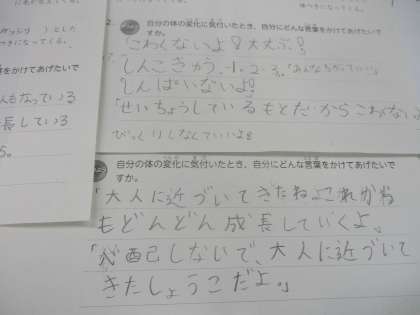 だし
体つきになってくる。
をかけてあげたいで
んもなっている
長している
る。
2. 自分の体の変化に気付いたとき、自分にどんな言葉をかけてあげたいで
すか。
「こわくないよ!大丈ぶ!」
「しんこきゅう、1・2・3。「みんなちがっていい」
しんぱいないよ!
「せいちょうしているもとだからこわがない
びっくりしなくていいよ!
自分の体の変化に気付いたとき、自分にどんな言葉をかけてあげたいで
すか。
「大人に近づいてきたねよこれから
もどんどん成長していくよ。」
「心配しないで、大人に近づいて
きたしょうこだよ。」